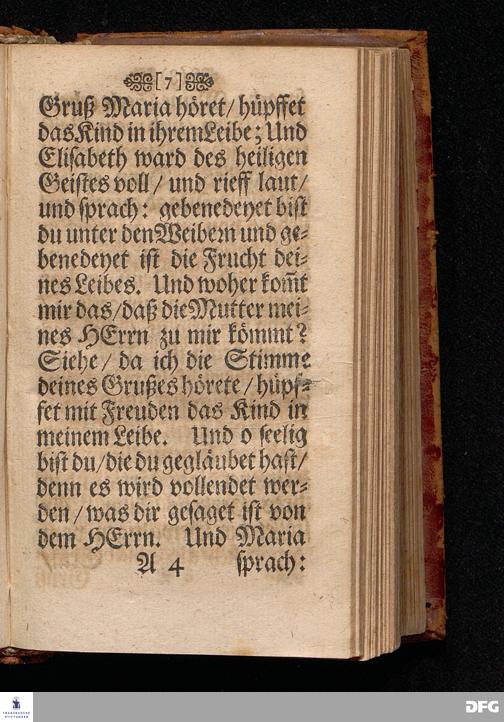 [7]
Gruß Maria höret/ hüpffet
das Kind in ihrem Leibe; Und
Elisabeth ward des heiligen
Geistes voll/ und rieff laut/
und sprach: gebenedeyet bist
du unter den Weibern und ge⸗
benedeyet ist die Frucht dei⸗
nes Leibes. Und woher kom̃t
mir das/ daß die Mutter mei⸗
nes HErrn zu mir kömmt?
Siehe/ da ich die Stimme
deines Grußes hörete/ hüpf⸗
fet mit Freuden das Kind in
meinem Leibe. Und o seelig
bist du/ die du gegläubet hast/
denn es wird vollendet wer⸗
den/ was dir gesaget ist von
dem HErrn. Und Maria
A 4 sprach:
FRANCKESCHE
STIFTUNGEN
DFG